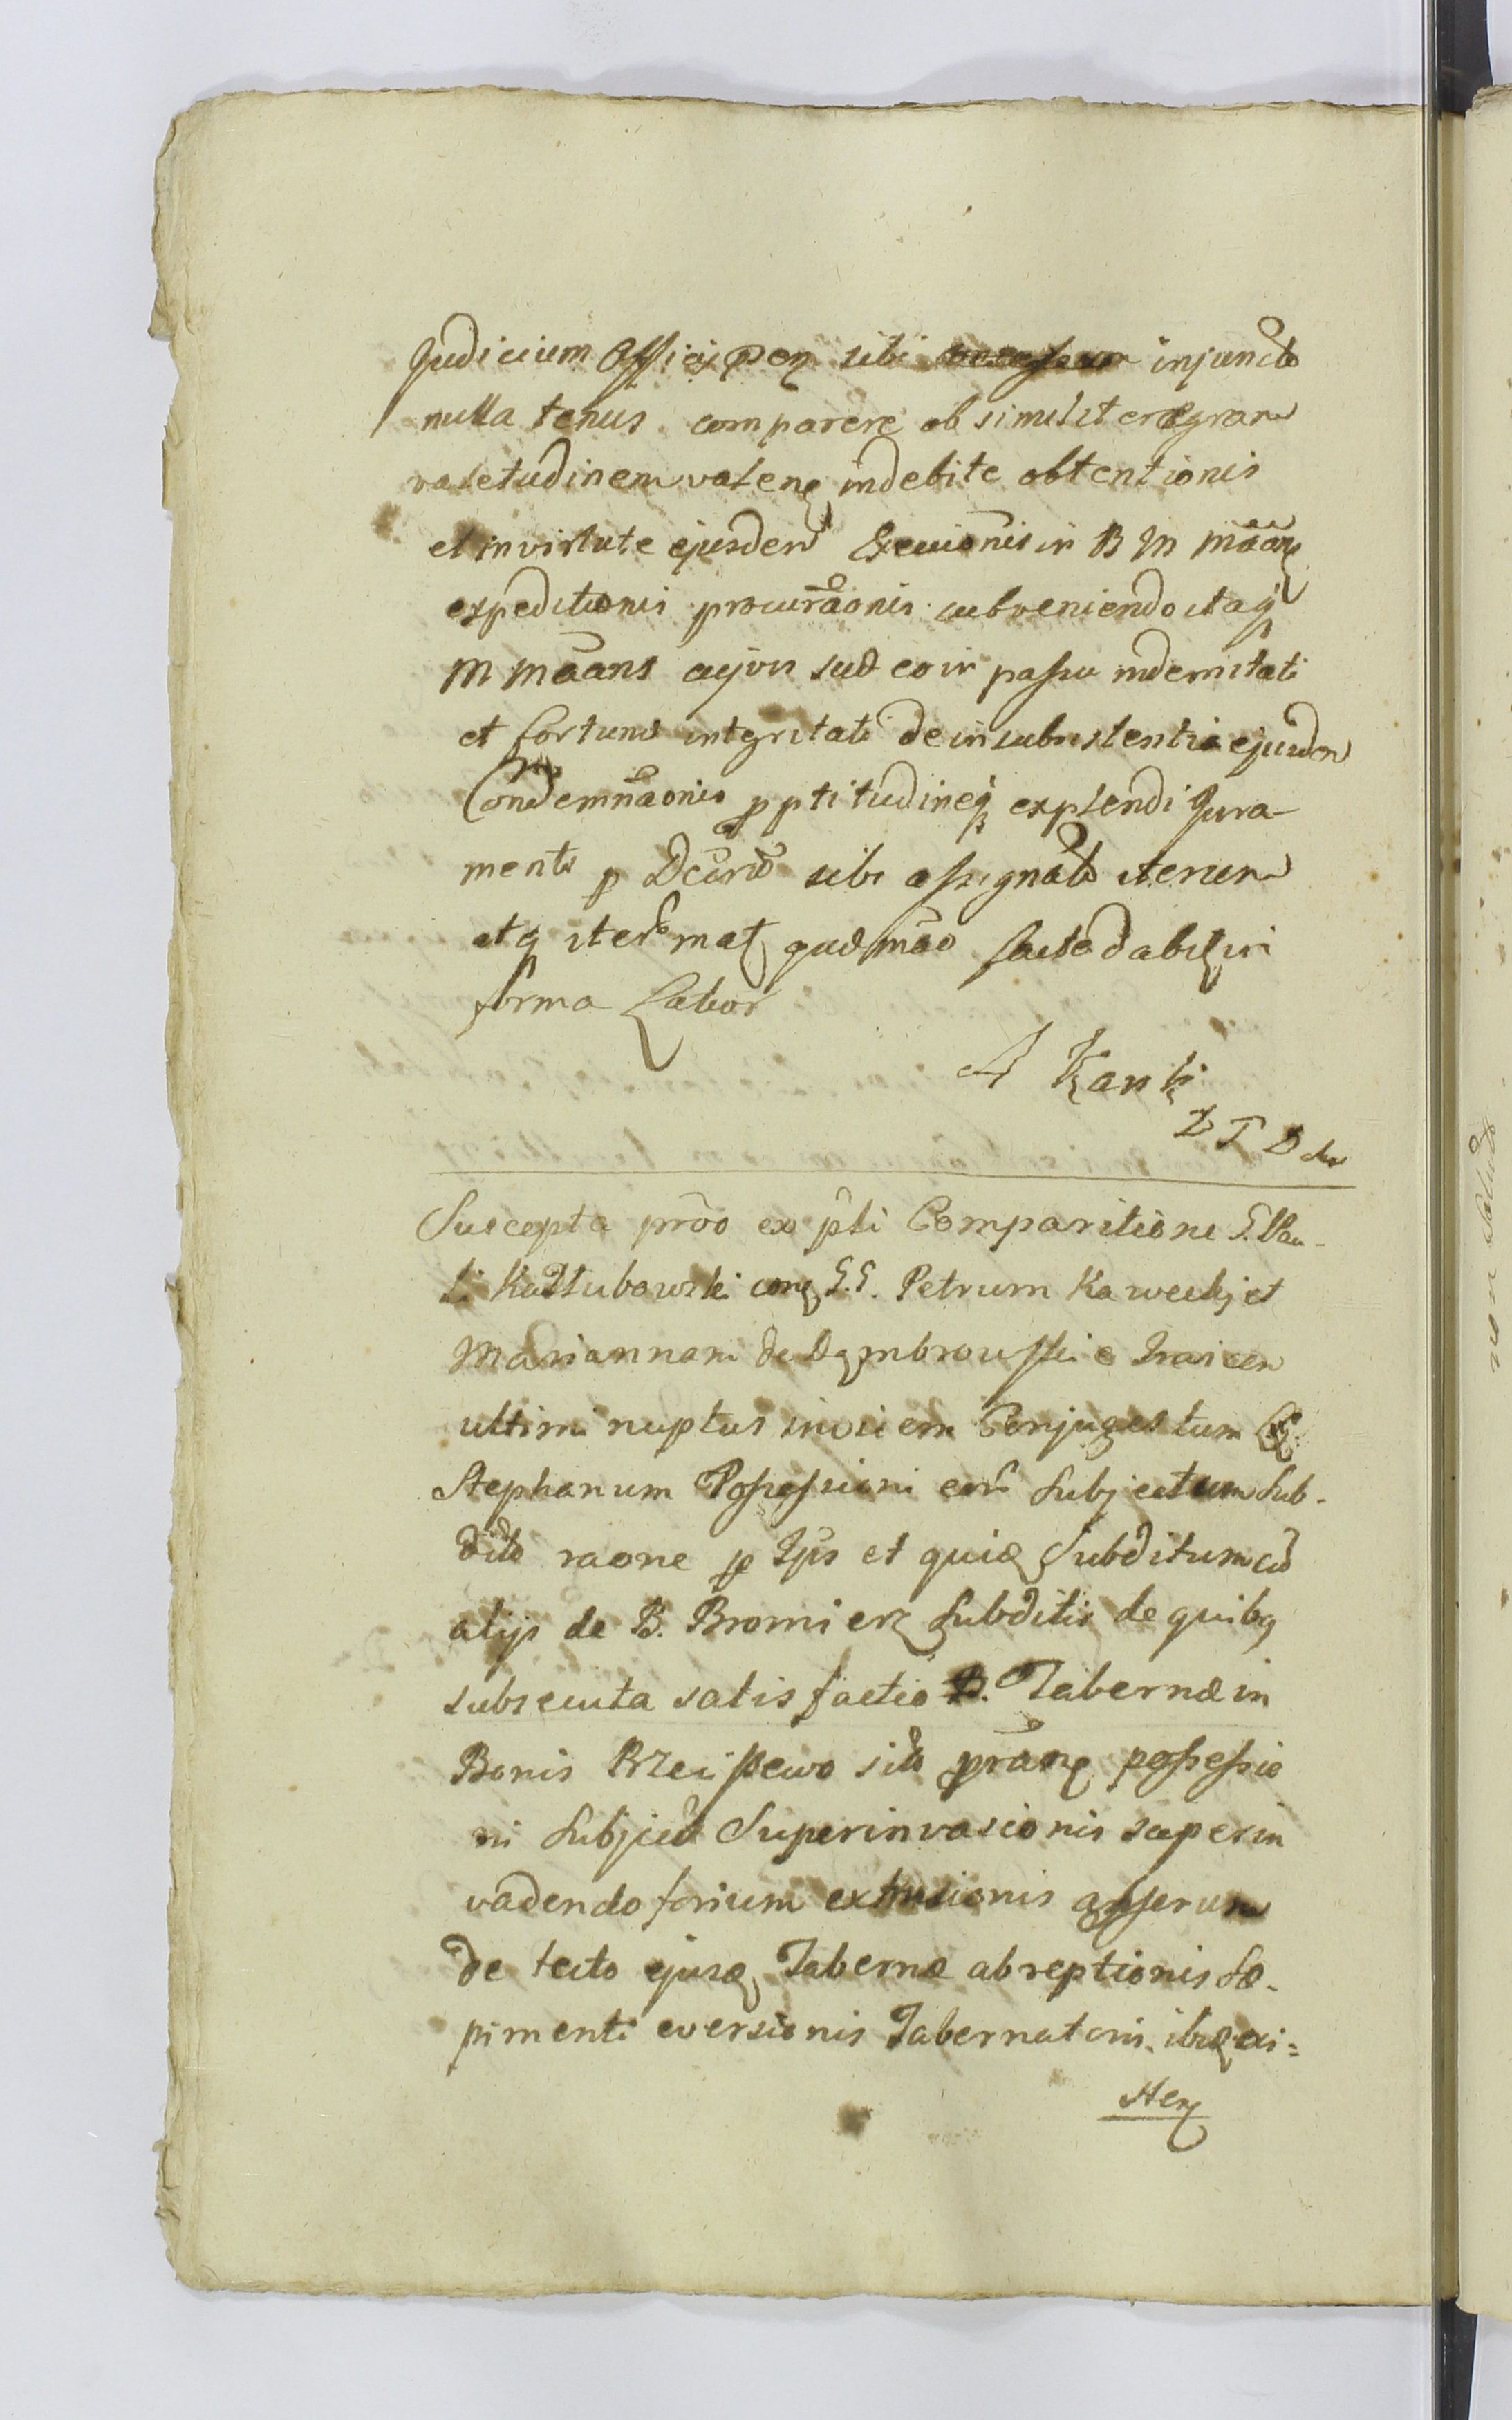 Judicium Officij pon sibi injuncto
nulla tenus comparere ob similiter ægram
valetudinem valenę indebite obtentionis
et in virtute ejusdem Execuionis in B M mãanę
expeditionis procurãonis subveniendo itaq
M mãans cujus suæ eo in passu indemnitati
et fortunæ integritati de insubsistentia ejusdem
Condemnãonis pptitudineq explendi Jura-
menti p Dcũm sibi assignato iterum
atq iterũ mat quæ mão facto dabit in
forma Latior
A Kank
Z T D
Suscepta prõo ex pti Comparitione G. Pau-
li Kadłubowski conę G.G. Petrum Kawecki et
Mariannam de Dąmbrowskie
ultimi nuptus invicem Conjuges tum
Stephanum Possessioni eorũ Subjectum Sub-
dito raone p Ips et quiæ Subditum cũ
alijs de B. Bromierz Subditis de quibq
subsecuta satisfactio Tabernæ in
Bonis Brzeiszewo sito prãnę possessio
ni Subject Superinvasionis superin
vadendo forium extrusionis asserum
de tecto ejusdę Tabernæ abreptionis Sæ-
pimenti eversionis Tabernatoris ibidę exi=
stenę
non valendo